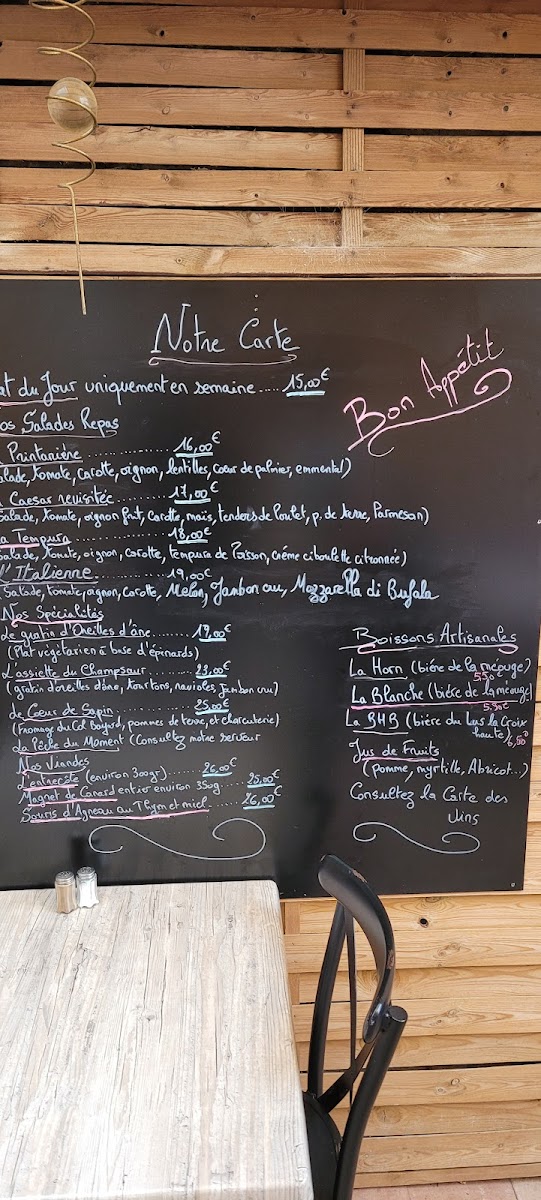 Notre Carte
Bon Appétit
at du Jour uniquement en semaine ..... 15,00€
os Salades Repas
Printanière ............ 16,00€
alade, tomate, carotte, oignon, lentilles, coeur de palmier, emmental)
Caesar revisitée ............ 17,00€
Salade, tomate, oignon frit, carotte, maïs, tenders de Poulet, p. de terre, Parmesan)
a Tempura ............ 18,00€
Salade, tomate, oignon, carotte, tempura de Poisson, crème ciboulette citronnée)
L'Italienne ............ 19,00€
Salade, tomate, oignon, carotte, Melon, Jambon cru, Mozzarella di Bufala
Nos Spécialités
Le gratin d'Oreilles d'âne ........ 19,00€
(Plat végétarien à base d'épinards)
L'assiette du Champsaur ........ 23,00€
(gratin d'oreilles d'âne, tourtons, ravioles, Jambon cru)
Le Coeur de Sapin ........ 25,00€
(Fromage du Col Bayard, pommes de terre, et charcuterie)
La Pêche du Moment (Consultez notre serveur
Nos Viandes
L'entrecôte (environ 300gr) ........ 26,00€
Magret de Canard entier environ 350g ..... 25,00€
Souris d'Agneau au Thym et miel ...... 26,00€
Boissons Artisanales
La Horn (bière de la meouge)
5,50€
La Blanche (bière de la meouge)
5,50€
La BHB (bière du Lus la Croix
haute) 6,50€
Jus de Fruits
(pomme, myrtille, Abricot...)
Consultez la Carte des
Vins